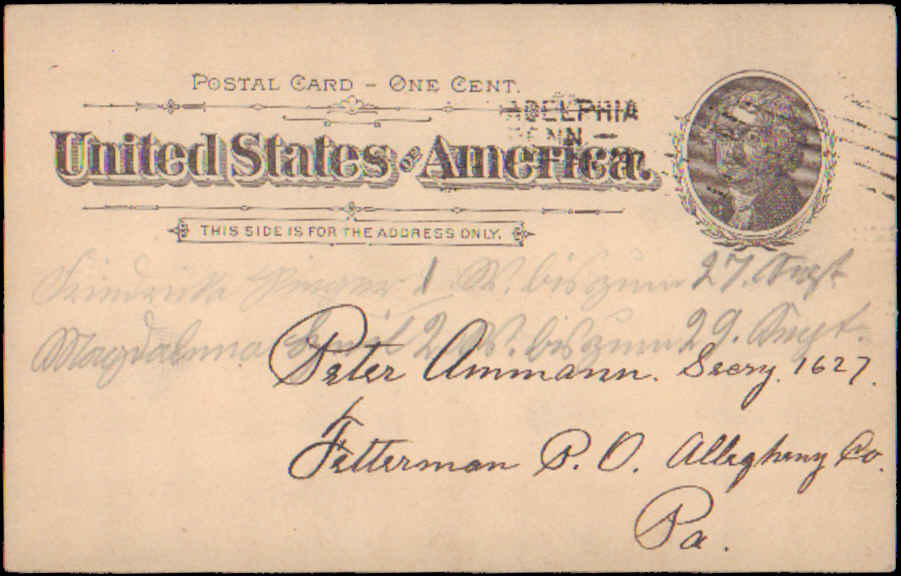 POSTAL CARD - ONE CENT.
ADELPHIA
PENN —
United States of America.
THIS SIDE IS FOR THE ADDRESS ONLY.
1 W. bis zum 27. Sept.
Magdalena 2 W. bis zum 29. Sept.
Peter Ammann. Secry. 1627.
Fetterman P. O. Allegheny Co.
Pa.